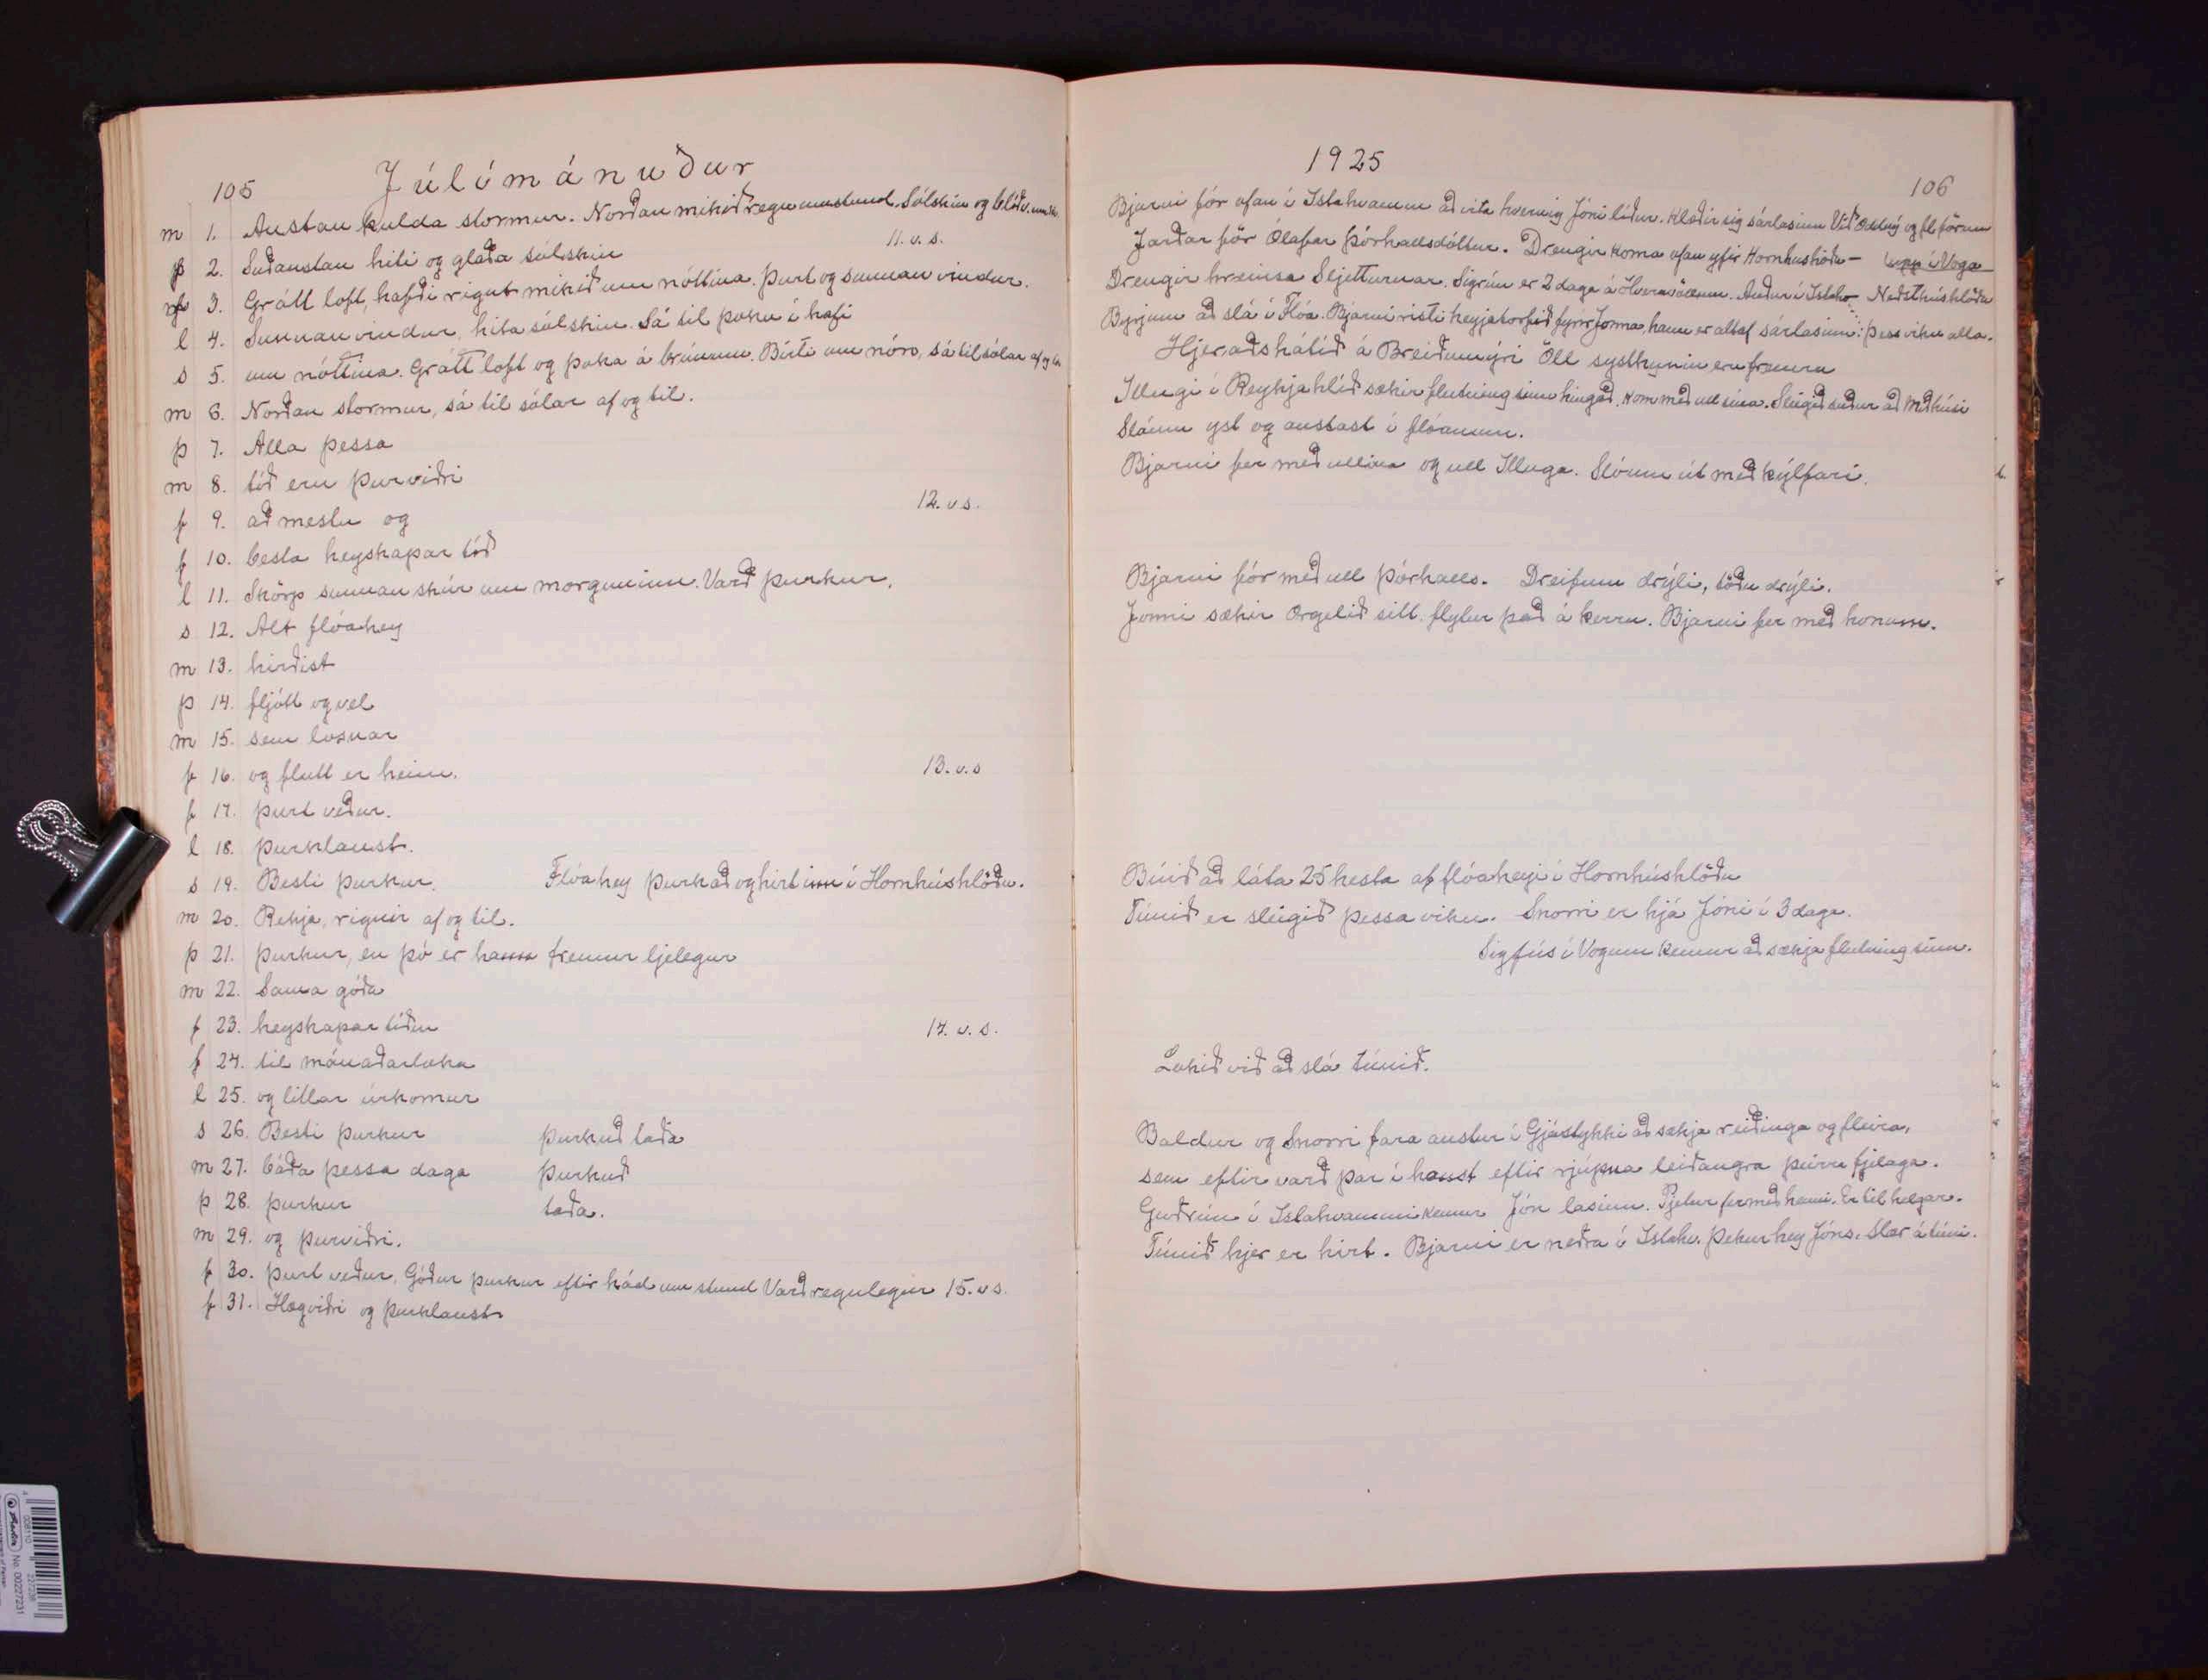 105 Júlímánuður
m 1. Austan kulda stormur. Norðan mikið regn um stund. Sólskin og blíðv. um kv.
þ 2. Suðaustan hiti og glaða sólskin 11. v. s.
3. Grátt loft, hafði rignt mikið um nóttina. Þurt og sunnan vindur.
l 4. Sunnan vindur, hita sólskin. Sá til þoku í hafi
s 5. um nóttina. Grátt loft og þoka á brúnum. Birti um nón, sá til sólar af og til
m 6. Norðan stormur, sá til sólar af og til.
þ 7. Alla þessa
m 8. tíð eru þurviðri
f 9. að mestu og 12. v.s.
f 10. besta heyskapar tíð
l 11. Skörp sunnan skúr um morguninn. Varð þurkur.
s 12. Alt flóahey
m 13. hirðist
þ 14. fljótt og vel
m 15. sem losnar
f 16. og flutt er heim. 13. v.s
f 17. þurt veður.
l 18. þurklaust.
s 19. Besti þurkur. Flóahey þurkað og hirt inn í Hornhúshlöðu.
m 20. Rekja, rignir af og til.
þ 21. þurkur, en þó er hann fremur ljelegur
m 22. Sama góða
f 23. heyskapar tíðin 14. v. s.
f 24. til mánaðarloka
l 25. og litlar úrkomur
s 26. Besti þurkur þurkuð taða
m 27. báða þessa daga þurkuð
þ 28. þurkur taða.
m 29. og þurviðri.
f 30. þurt veður. Góður þurkur eftir hád um stund Varð regnlegur 15. v s.
f 31. Hægviðri og þurklaust
1925
106
Bjarni fór ofan í Ístahvamm að vita hvernig Jóni líður. Klæðir sig sárlasinn Við Oddný og fl förum
Jarðar för Ólafar Þórhallsdóttur. Drengir koma ofan yfir Hornhushöðu - upp í Voga
Drengir hreinsa Sljetturnar. Sigrún er 2 daga á Hveravöllum. Auður í Ístahv. Neðsthúshlöðu
Byrjum að slá í Flóa. Bjarni risti heyjatorfið fyrir Jonna, hann er altaf sárlasinn: þess viku alla.
Hjeraðshátíð á Breiðumýri Öll systkynin eru framm
Illugi í Reykjahlíð sækir flutning sinn hingað. Kom með ull sína. Slegið suður að Miðhúsi
Sláum yst og austast í flóanum.
Bjarni fer með ullina og ull Illuga. Slóum út með kýlfari.
Bjarni fór með ull Þórhalls. Dreifum drýli, töðu drýli.
Jonni sækir Orgelið sitt. flytur það á kerru. Bjarni fer með honum.
Búið að láta 25 hesta af flóaheyi í Hornhúshlöðu
Túnið er slegið þessa viku. Snorri er hjá Jóni í 3 daga.
Sigfús í Vogum kemur að sækja flutning sinn.
Lokið við að slá túnið.
Baldur og Snorri fara austur í Gjástykki að sækja reiðinga og fleira,
sem eftir varð þar í haust eftir rjúpna leiðangra þeirra fjelaga.
Guðrún í Ístahvammi kemur Jón lasinn. Pjetur fer með henni. Er til helgar.
Túnið hjer er hirt. Bjarni er neðra í Ístahv. Þekur hey Jóns. Slær á túni.